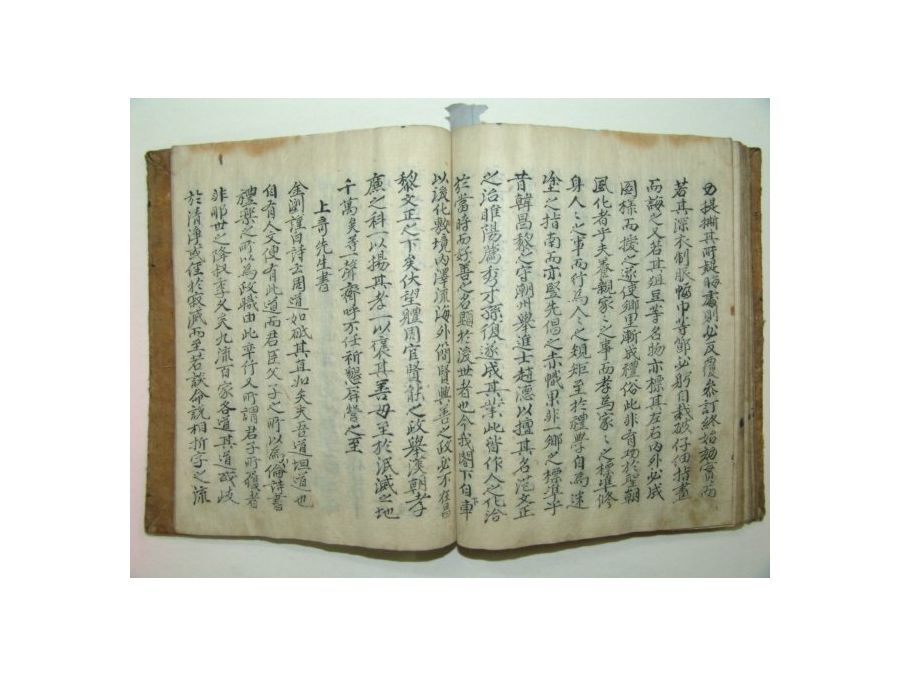 提撕其所疑晦處則必反覆參訂終始
若其深衣制服幅巾等節必躬自裁破仔細指畫
而誨之又若其俎豆等名物亦標其左右內外必成
圖樣而授之遂使鄉里漸成禮俗此非有功於聖朝
風化者乎夫養親家之事而孝為家之標準修
身人之事而行為人之規矩至於禮學自為迷
塗之指南而亦竪先倡之赤幟果非一鄉之標準乎
昔韓昌黎之守潮州舉進士趙德以擅其名范文正
之治睢陽薦秀才孫復遂成其業此皆作人之化洽
於當時而好善之名顯於後世者也今我閤下自下車
以後化敷境內澤流海外簡賢興善之政必不在昌
黎文正之下矣伏望體周官賢能之政舉漢朝孝
廉之科一以揚其孝一以褒其善毋至於泯滅之地
千萬矣等一聲齊呼不任祈懇屏營之至
上奇先生書
金瀏謹白詩云周道如砥其直如矢夫吾道坦道也
自有人文便有此道而君臣父子之所以為倫詩書
禮樂之所以為政職由此率行又所謂君子所履者
非耶世之降叔季久矣九流百家各道其道或歧
於清淨或徑於寂滅而至若談命說相折字之流